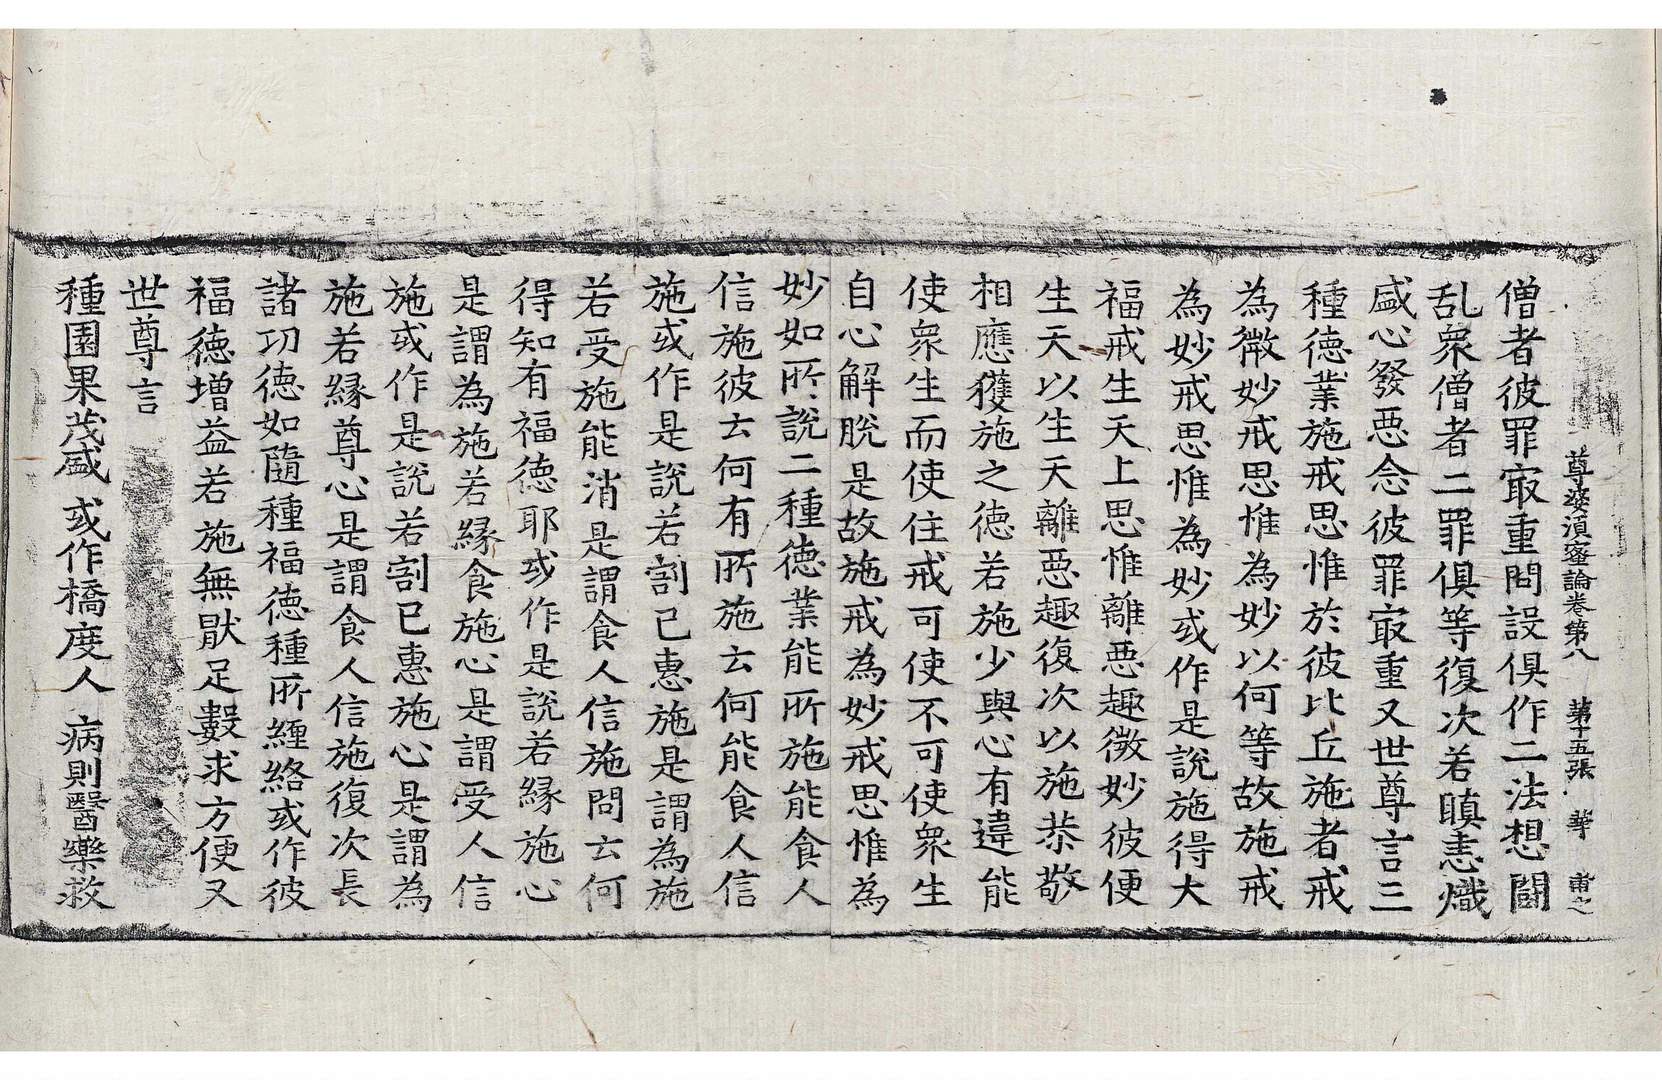 尊婆湏蜜論卷第八　第十五張　華　甫之
僧者彼罪㝡重問設俱作二法想鬪
乱衆僧者二罪俱等復次若瞋恚熾
盛心發惡念彼罪㝡重又世尊言三
種德業施戒思惟於彼比丘施者戒
為微妙戒思惟為妙以何等故施戒
為妙戒思惟為妙或作是說施得大
福戒生天上思惟離惡趣微妙彼便
生天以生天離惡趣復次以施恭敬
相應獲施之德若施少與心有違能
使衆生而使住戒可使不可使衆生
自心解脫是故施戒為妙戒思惟為
妙如所說二種德業能所施能食人
信施彼云何有所施云何能食人信
施或作是說若割己惠施是謂為施
若受施能消是謂食人信施問云何
得知有福德耶或作是說若緣施心
是謂為施若緣食施心是謂受人信
施或作是說若割己惠施心是謂為
施若緣尊心是謂食人信施復次長
諸功德如隨種福德種所纏絡或作彼
福德增益若施無猒足數求方便又
世尊言
種園果茂盛　或作橋度人　病則醫藥救